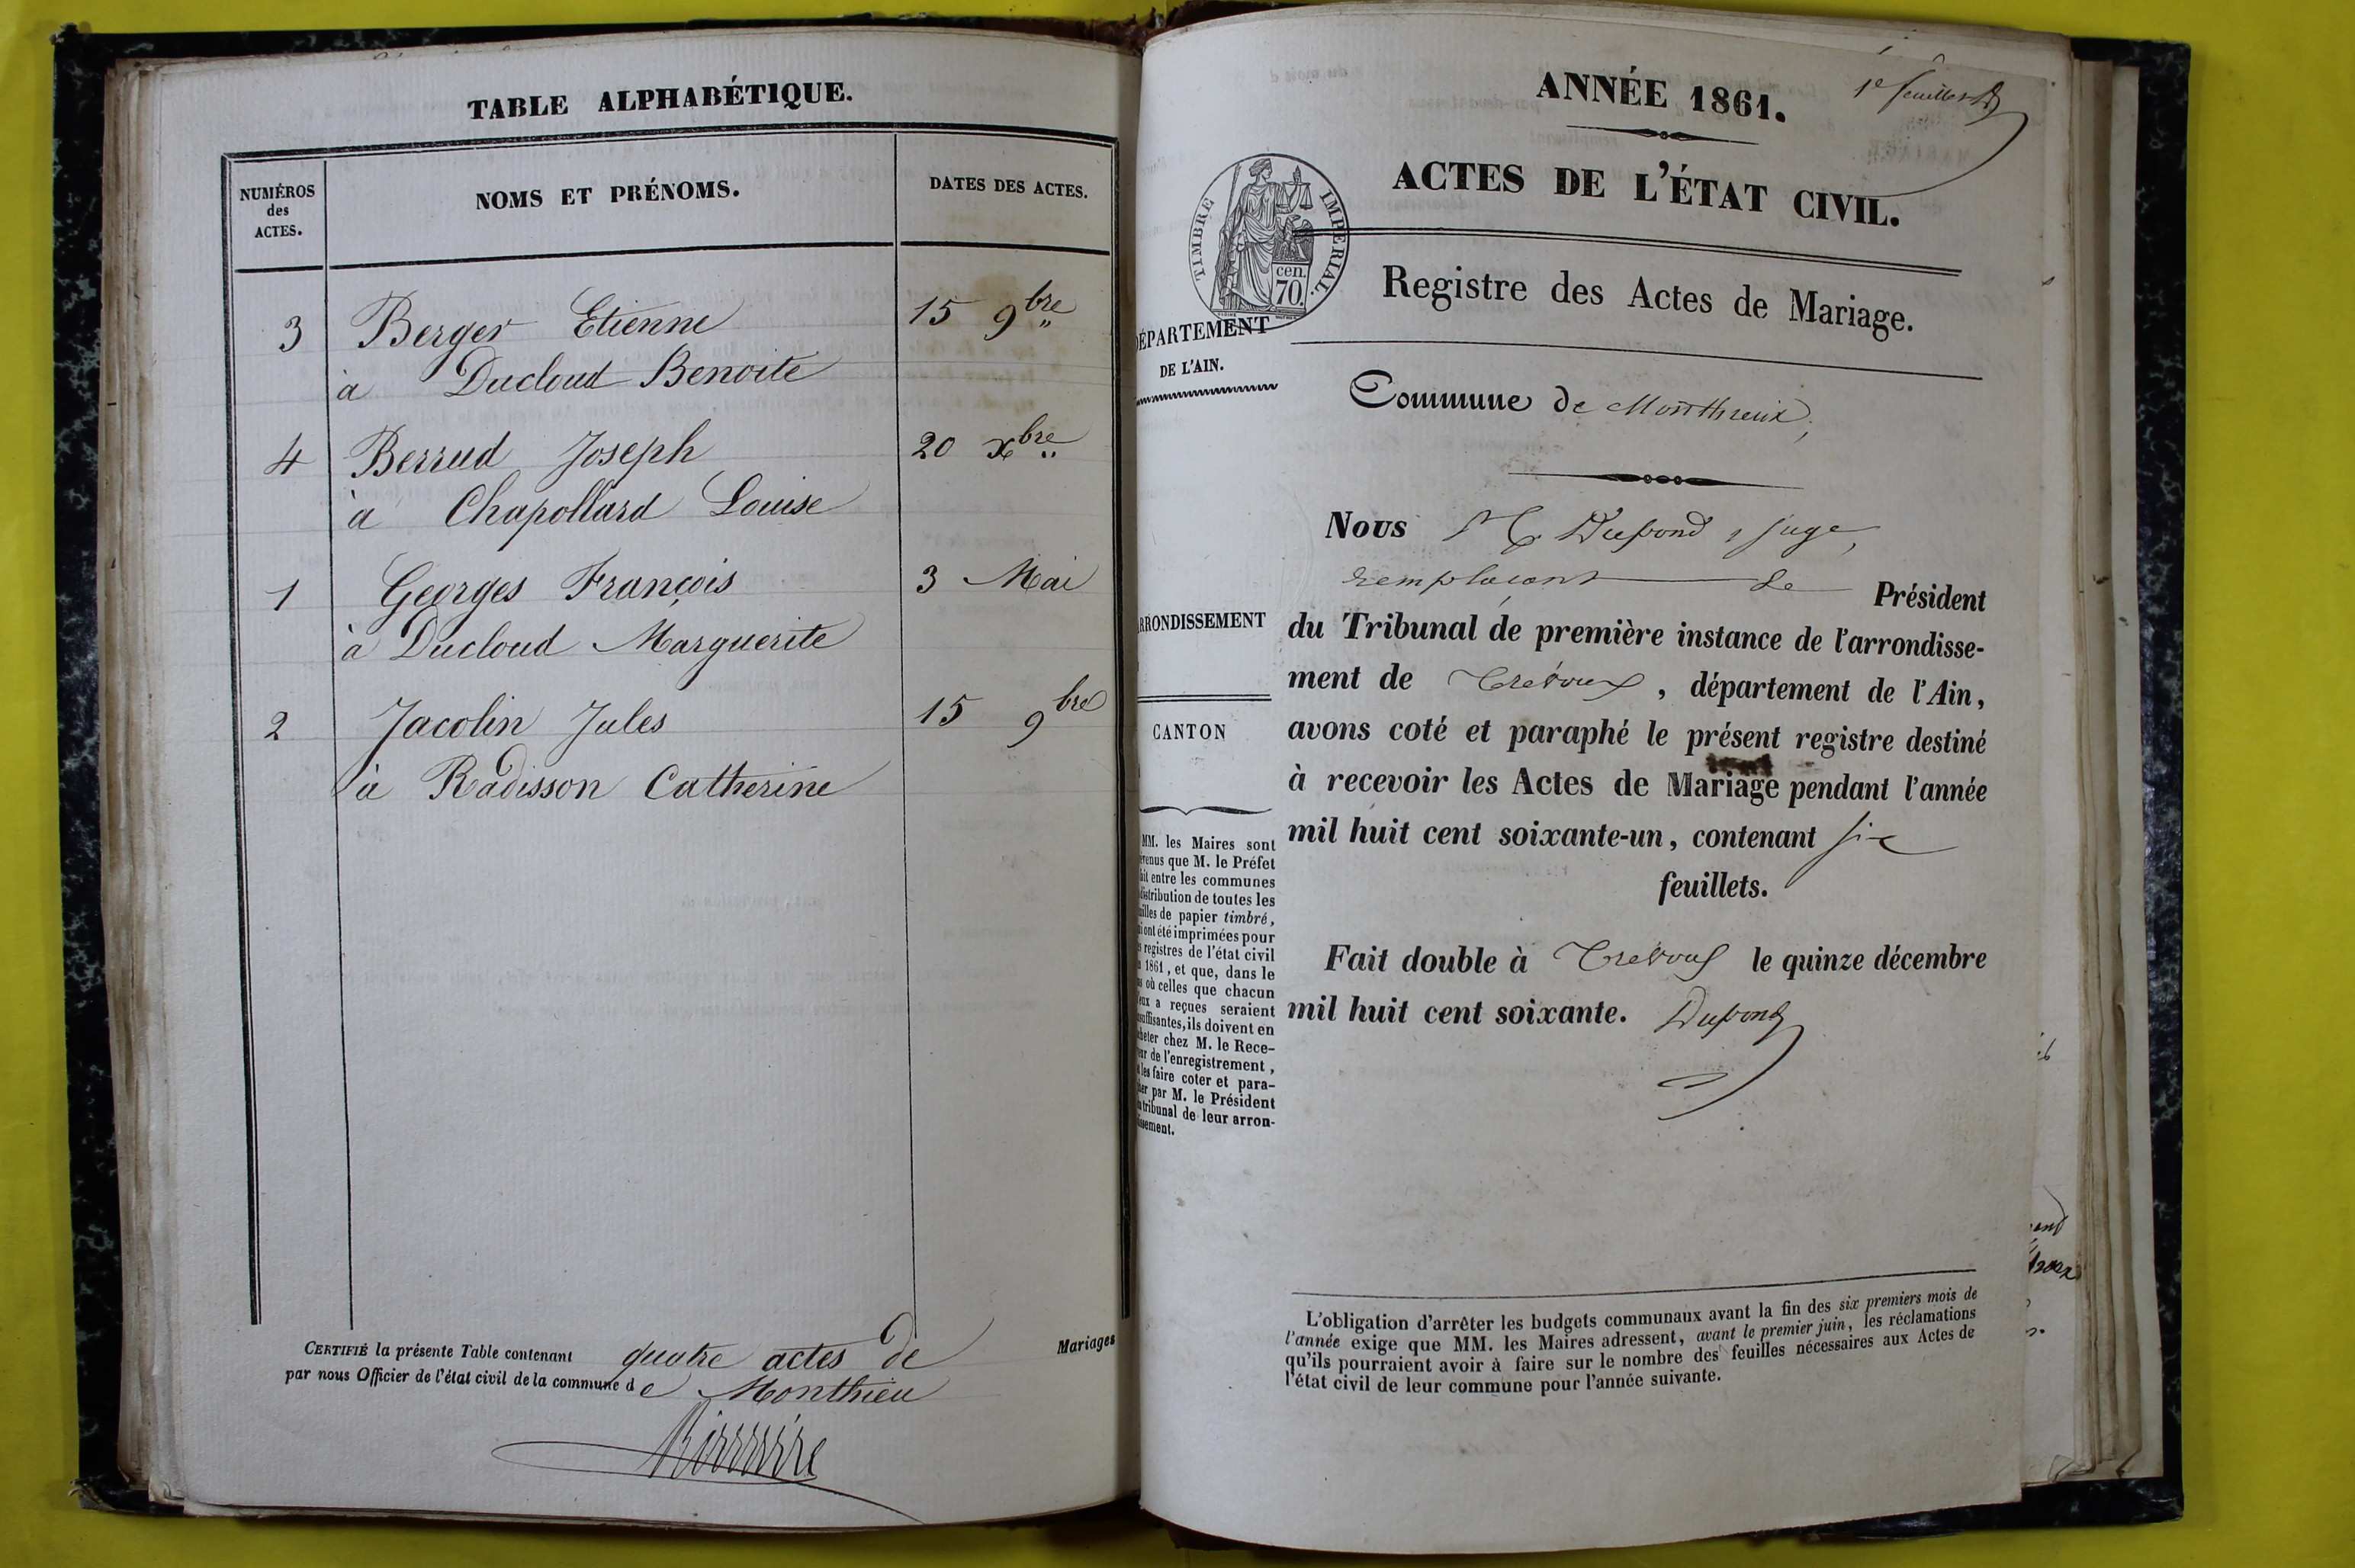 TABLE ALPHABÉTIQUE.
NUMÉROS
des
ACTES.
NOMS ET PRÉNOMS.
DATES DES ACTES.
3 Berger Etienne 15 9bre
à Ducloud Benoite
4 Berrud Joseph 20 xbre
à Chapollard Louise
1 Georges François 3 Mai
à Ducloud Marguerite
2 Jacolin Jules 15 9bre
à Radisson Catherine
CERTIFIÉ la présente Table contenant quatre actes de Mariages
par nous Officier de l'état civil de la commune de Monthieu
1e feuillet
ANNÉE 1861.
ACTES DE L'ÉTAT CIVIL.
TIMBRE IMPÉRIAL.
cen.
70.
Registre des Actes de Mariage.
DÉPARTEMENT
DE L'AIN.
Commune de Monthieux,
Nous Dupond, juge,
remplaçant le Président
du Tribunal de première instance de l'arrondisse-
ment de Trévoux, département de l'Ain,
avons coté et paraphé le présent registre destiné
à recevoir les Actes de Mariage pendant l'année
mil huit cent soixante-un, contenant six
feuillets.
Fait double à Trevoux le quinze décembre
mil huit cent soixante. Dupond
RRONDISSEMENT
CANTON
MM. les Maires sont
évenus que M. le Préfet
ait entre les communes
distribution de toutes les
uilles de papier timbré,
ui ont été imprimées pour
es registres de l'état civil
n 1861, et que, dans le
as où celles que chacun
'eux a reçues seraient
nsuffisantes, ils doivent en
cheter chez M. le Rece-
eur de l'enregistrement,
les faire coter et para-
her par M. le Président
u tribunal de leur arron-
issement.
L'obligation d'arrêter les budgets communaux avant la fin des six premiers mois de
l'année exige que MM. les Maires adressent, avant le premier juin, les réclamations
qu'ils pourraient avoir à faire sur le nombre des feuilles nécessaires aux Actes de
l'état civil de leur commune pour l'année suivante.